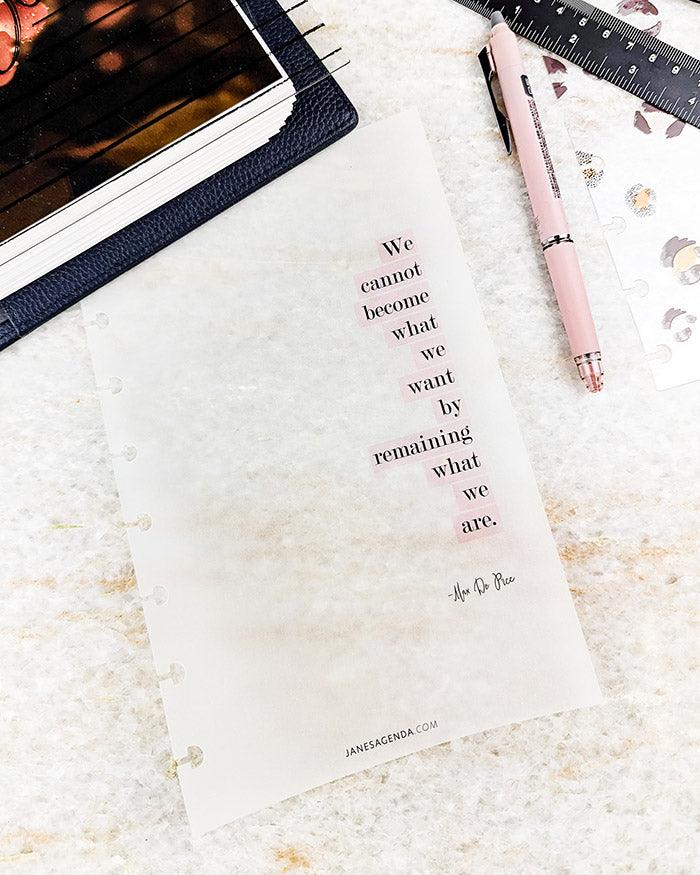 We
cannot
become
what
we
want
by
remaining
what
we
are.
-Max De Pree
JANESAGENDA.COM